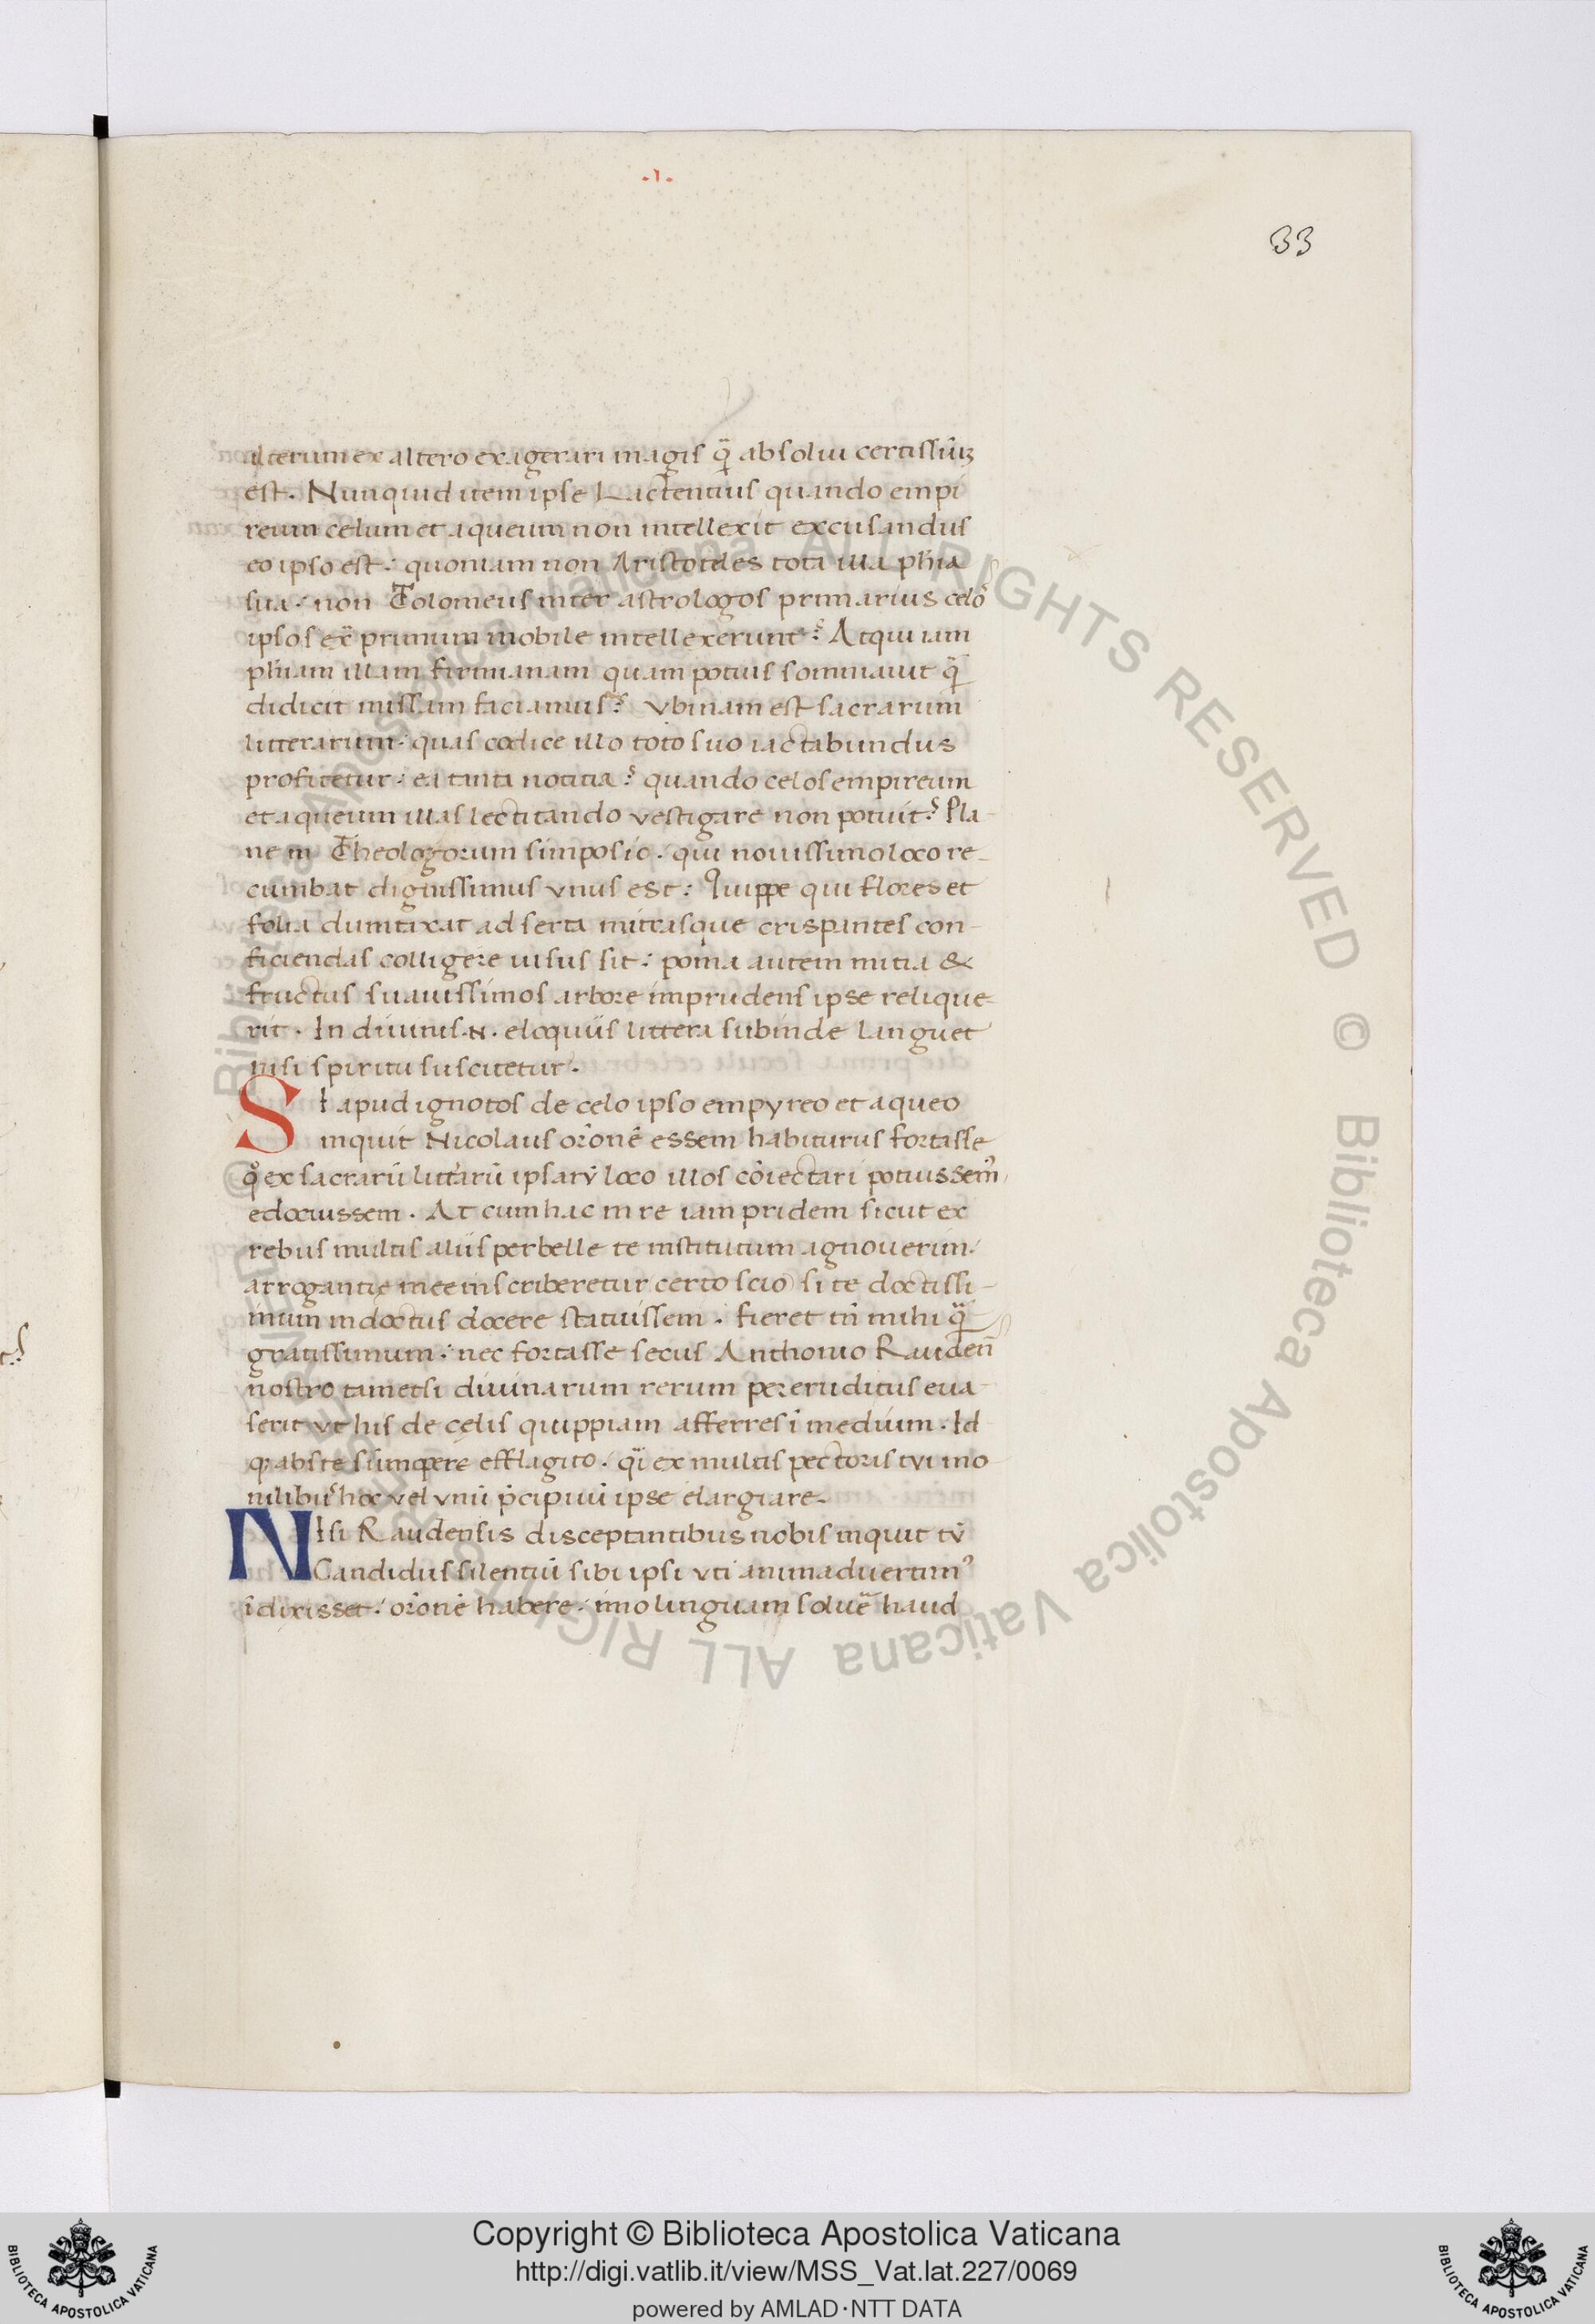 .1.
33
alterum ex altero exagerari magis q̃ absolui certissiũꝫ
est. Nunquid item ipse Lactentius quando empi
reum celum et aqueum non intellexit excusandus
eo ipso est: quoniam non Aristoteles tota illa phia
sua: non Tolomeus inter astrologos primarius celo
ipsos ex̃ primum mobile intellexerunt? Atqui iam
phiam illam firmianam quam potius somniauit q̃
didicit missam faciamus? Vbinam est sacrarum
litterarum: quas codice illo toto suo iactabundus
profitetur: ea tanta notitia? quando celos empireum
et aqueum illas lectitando vestigare non potuit? Pla-
ne in Theologorum simposio. qui nouissimo loco re-
cumbat dignissimus vnus est: Quippe qui flores et
folia dumtaxat ad serta mitrasque crispantes con-
ficiendas colligere uisus sit: poma autem mitia &
fructus suauissimos arbore imprudens ipse relique-
rit. In diuinis .N. eloquiis littera subinde languet
nisi spiritu suscitetur.
SI apud ignotos de celo ipso empyreo et aqueo
inquit Nicolaus orõnẽ essem habiturus fortasse
q̊ ex sacrarũ littarũ ipsarũ loco illos cõiectari potuissem9
edocuissem. At cum hac in re iam pridem sicut ex
rebus multis aliis perbelle te institutum agnouerim:
arrogantię meę inscriberetur certo scio si te doctissi-
mum indoctus docere statuissem. fieret tñ mihi q̃
gratissimum: nec fortasse secus Anthonio Raudeñ
nostro tametsi diuinarum rerum pereruditus eua-
serit vt his de celis quippiam afferres ĩ medium. Id
qꝫ abs te summopere efflagito. q̃ ex multis pectoris tui mo
nilibus hoc vel vnũ p̃cipuũ ipse elargiare.
NIsi Raudensis disceptantibus nobis inquit tũ
Candidus silentiũ sibi ipsi vti animaduertim9
ĩdixisset: orõnẽ habere: imo linguam soluẽ haud
Copyright © Biblioteca Apostolica Vaticana
http://digi.vatlib.it/view/MSS_Vat.lat.227/0069
powered by AMLAD·NTT DATA